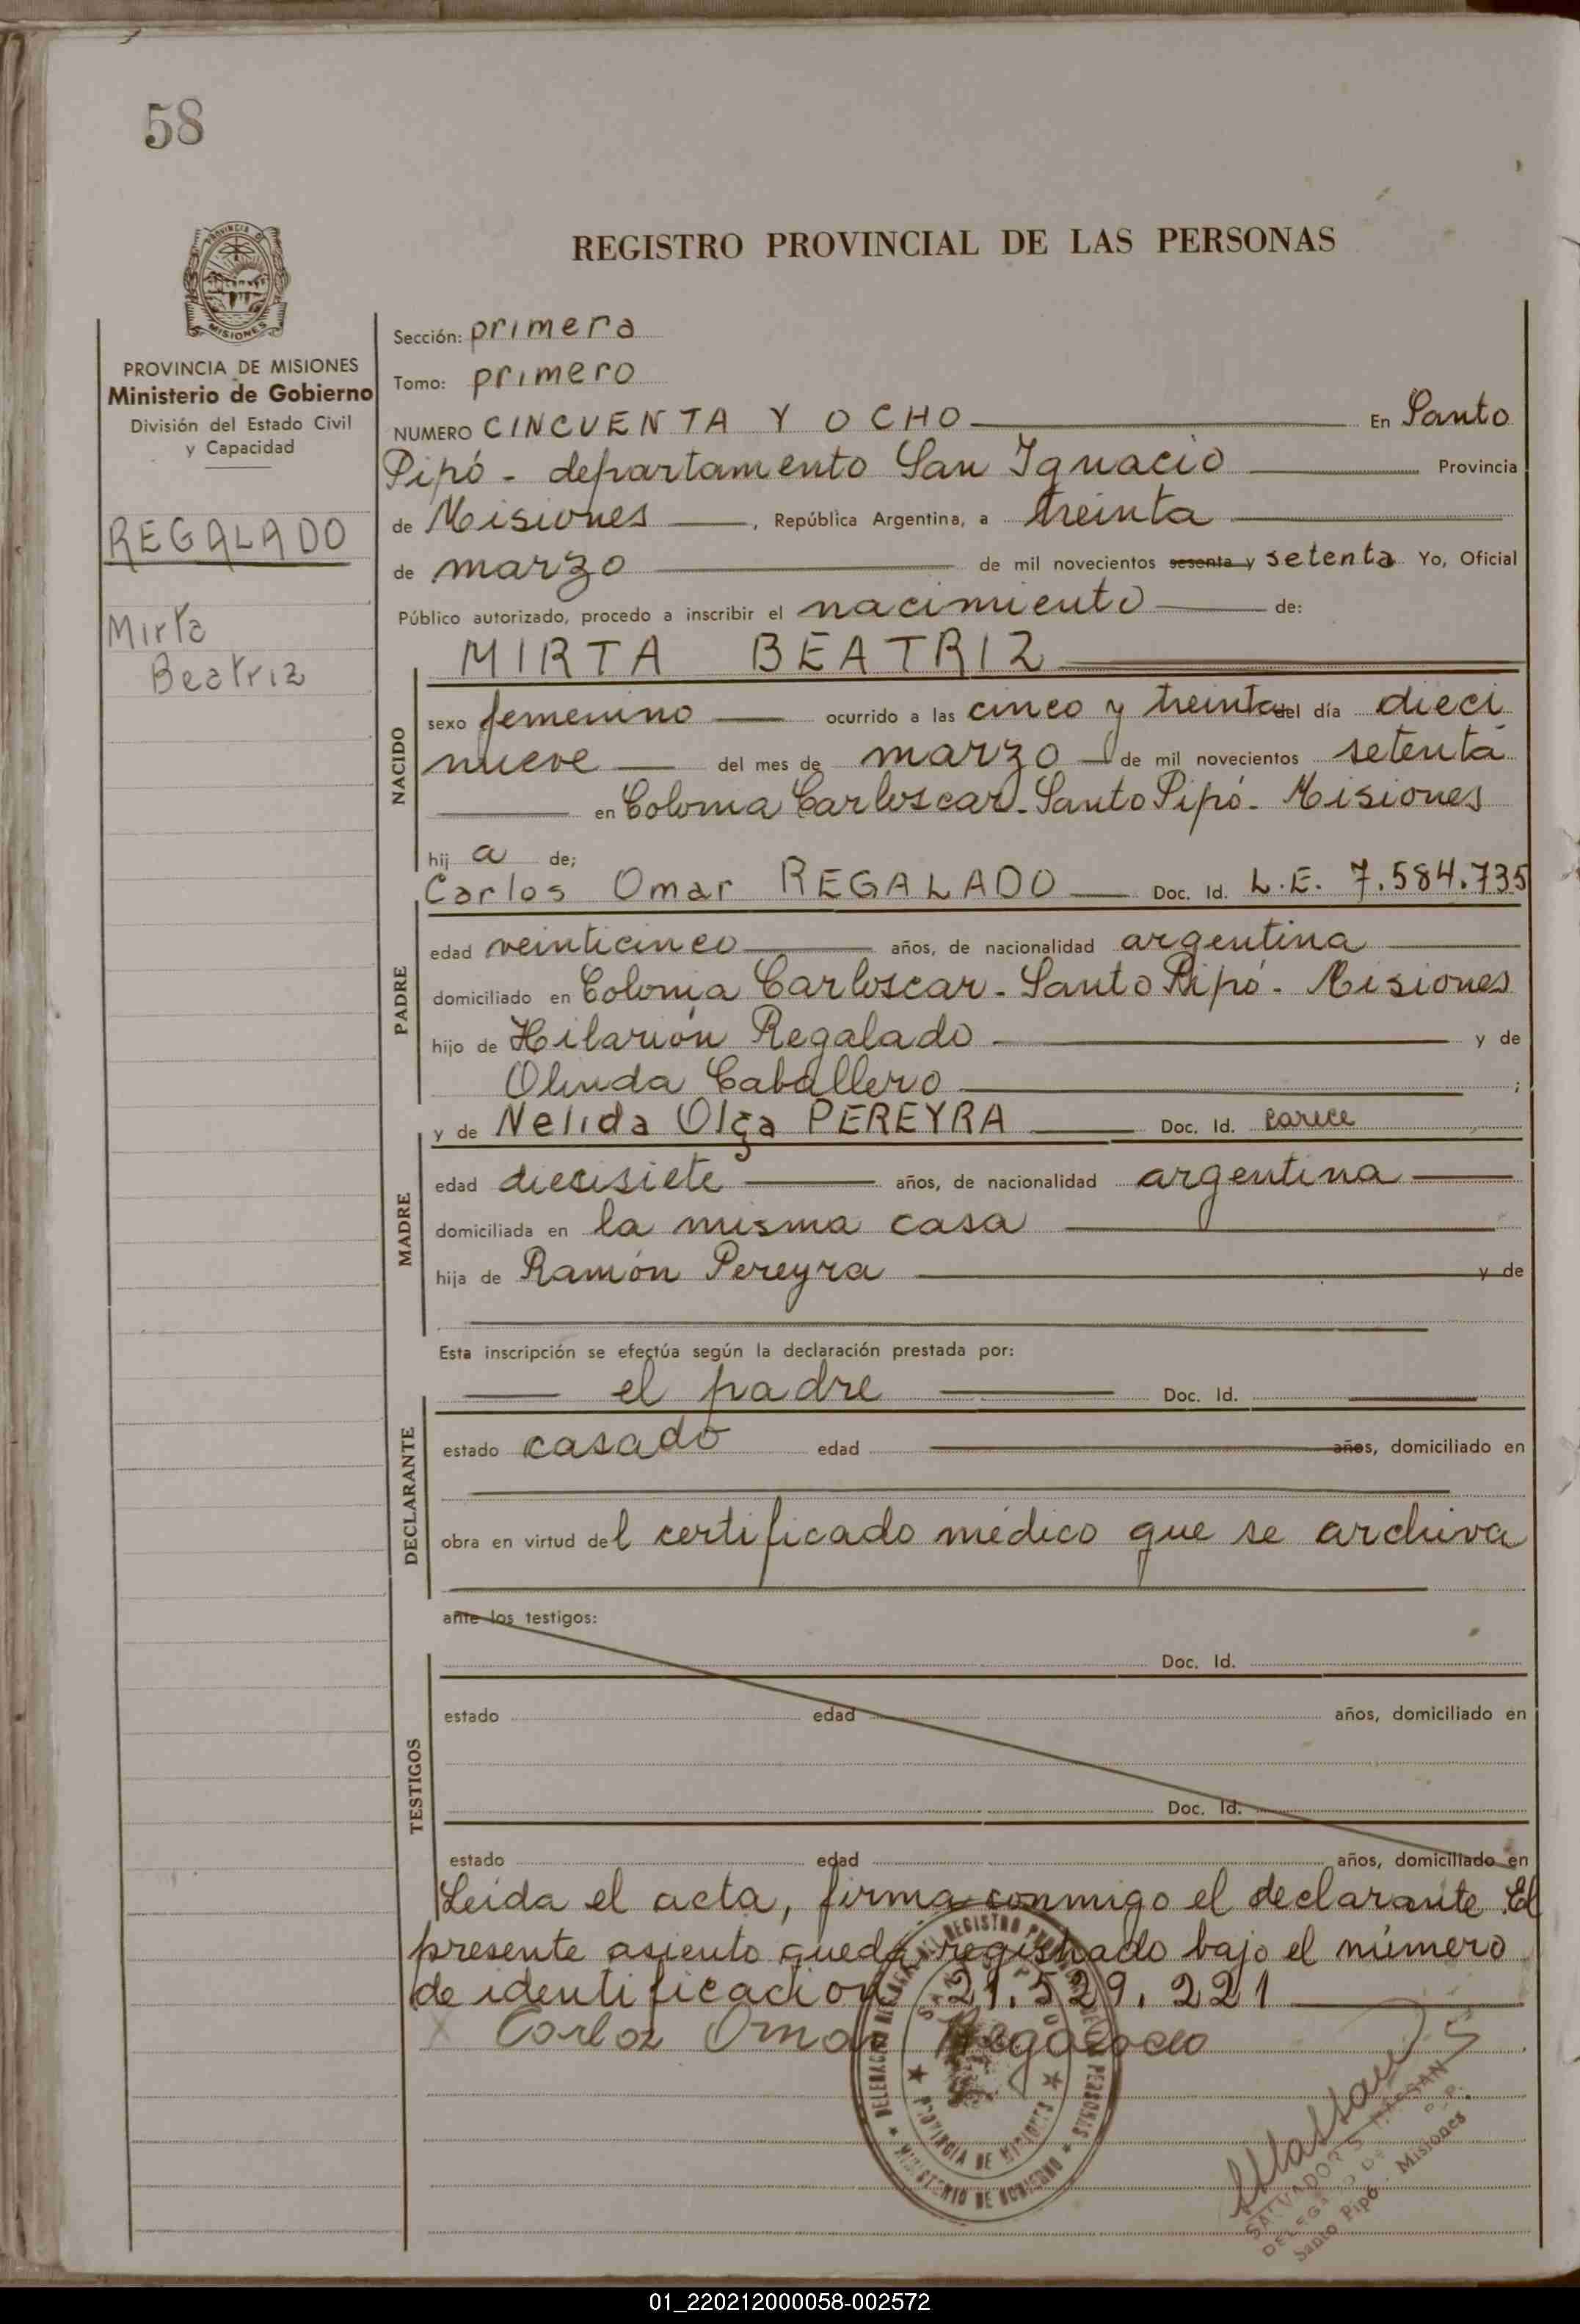 58
REGISTRO PROVINCIAL DE LAS PERSONAS
PROVINCIA DE
MISIONES
PROVINCIA DE MISIONES
Ministerio de Gobierno
División del Estado Civil
y Capacidad
REGALADO
Mirta
Beatriz
Sección: primera
Tomo: primero
NUMERO CINCUENTA Y OCHO En Santo
Pipó - departamento San Ignacio Provincia
de Misiones, República Argentina, a treinta
de marzo de mil novecientos sesenta y setenta Yo, Oficial
Público autorizado, procedo a inscribir el nacimiento de:
MIRTA BEATRIZ
NACIDO
sexo femenino ocurrido a las cinco y treinta del día dieci
nueve del mes de marzo de mil novecientos setenta
en Colonia Carloscar - Santo Pipó - Misiones
hij a de;
Carlos Omar REGALADO Doc. Id. L.E. 7.584.735
PADRE
edad veinticinco años, de nacionalidad argentina
domiciliado en Colonia Carloscar - Santo Pipó - Misiones
hijo de Hilarión Regalado y de
Olinda Caballero ;
y de Nelida Olga PEREYRA Doc. Id. carece
MADRE
edad diecisiete años, de nacionalidad argentina
domiciliada en la misma casa
hija de Ramón Pereyra y de
Esta inscripción se efectúa según la declaración prestada por:
el padre Doc. Id.
DECLARANTE
estado casado edad años, domiciliado en
obra en virtud del certificado médico que se archiva
ante los testigos:
Doc. Id.
TESTIGOS
estado edad años, domiciliado en
Doc. Id.
estado edad años, domiciliado en
Leida el acta, firma conmigo el declarante. El
presente asiento queda registrado bajo el número
de identificacion 21.529.221
Carlos Omar Regalado
PROVINCIA DE MISIONES
MINISTERIO DE GOBIERNO
SALVADOR S. HASSAN
Santo Pipó - Misiones
01_220212000058-002572